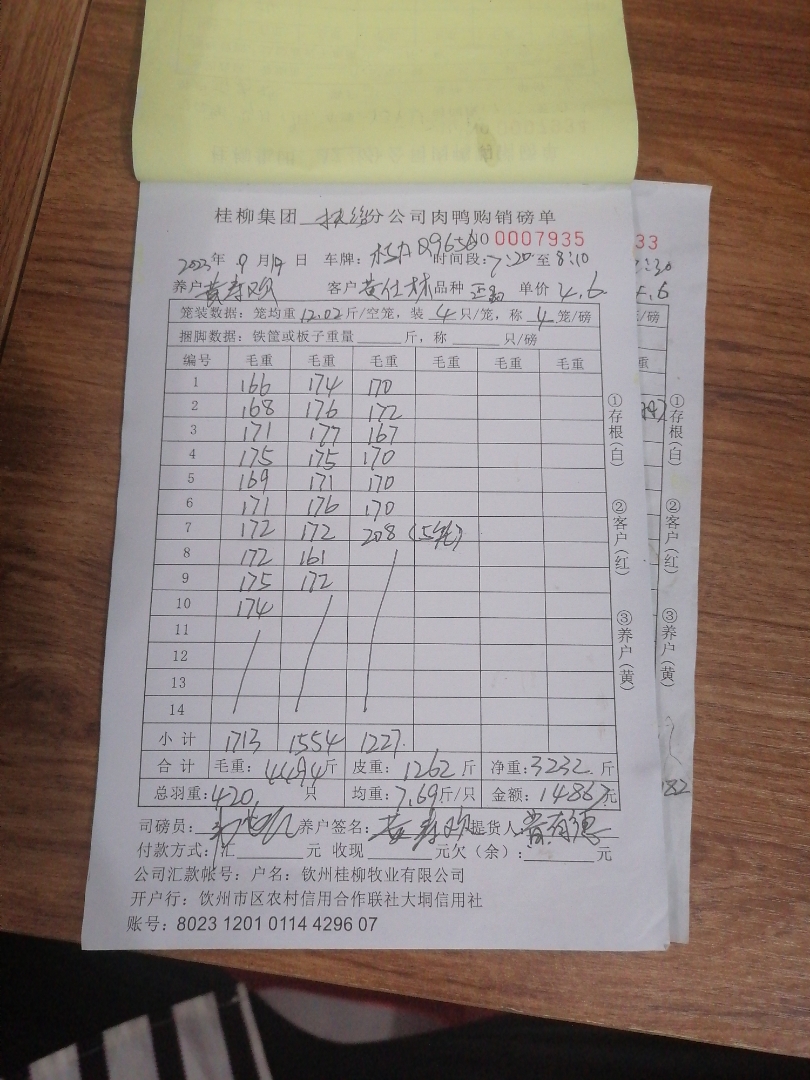 桂柳集团 分公司肉鸭购销磅单
NO 0007935
2023年 9月14日 车牌: Q9656 时间段:7:20至8:10
养户 黄寿欢 客户 黄仕林 品种 正 单价 4.6
笼装数据: 笼均重 12.02 斤/空笼, 装 4 只/笼, 称 4 笼/磅
捆脚数据: 铁筐或板子重量 斤, 称 只/磅
编号 毛重 毛重 毛重 毛重 毛重 毛重
1 166 174 170
2 168 176 172
3 171 177 167
4 175 175 170
5 169 171 170
6 171 176 170
7 172 172 208 (5笼)
8 172 161
9 175 172
10 174
11
12
13
14
小计 1713 1554 1227.
合计 毛重: 4494斤 皮重: 1262斤 净重:3232.斤
总羽重:420 只 均重:7.69斤/只 金额: 14867元
司磅员: 养户签名: 黄寿欢 提货人: 黄有德
付款方式: 汇 元 收现 元欠(余): 元
公司汇款帐号: 户名: 钦州桂柳牧业有限公司
开户行: 钦州市区农村信用合作联社大垌信用社
账号: 8023 1201 0114 4296 07
①存根(白)
②客户(红)
③养户(黄)
33
:30
4.6
/磅
重
①存根(白)
②客户(红)
③养户(黄)
182